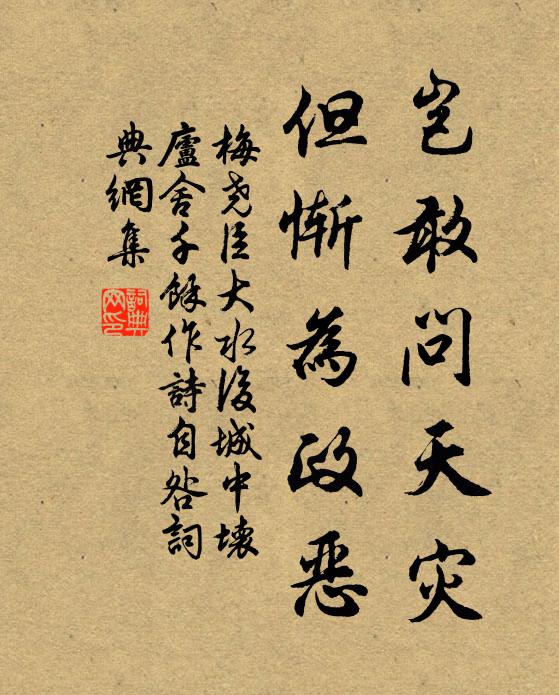 豈敢問天災
但慚為政惡
梅堯臣大水後城中壞
廬舍千餘作詩自咎詞
典網集
詞典網印